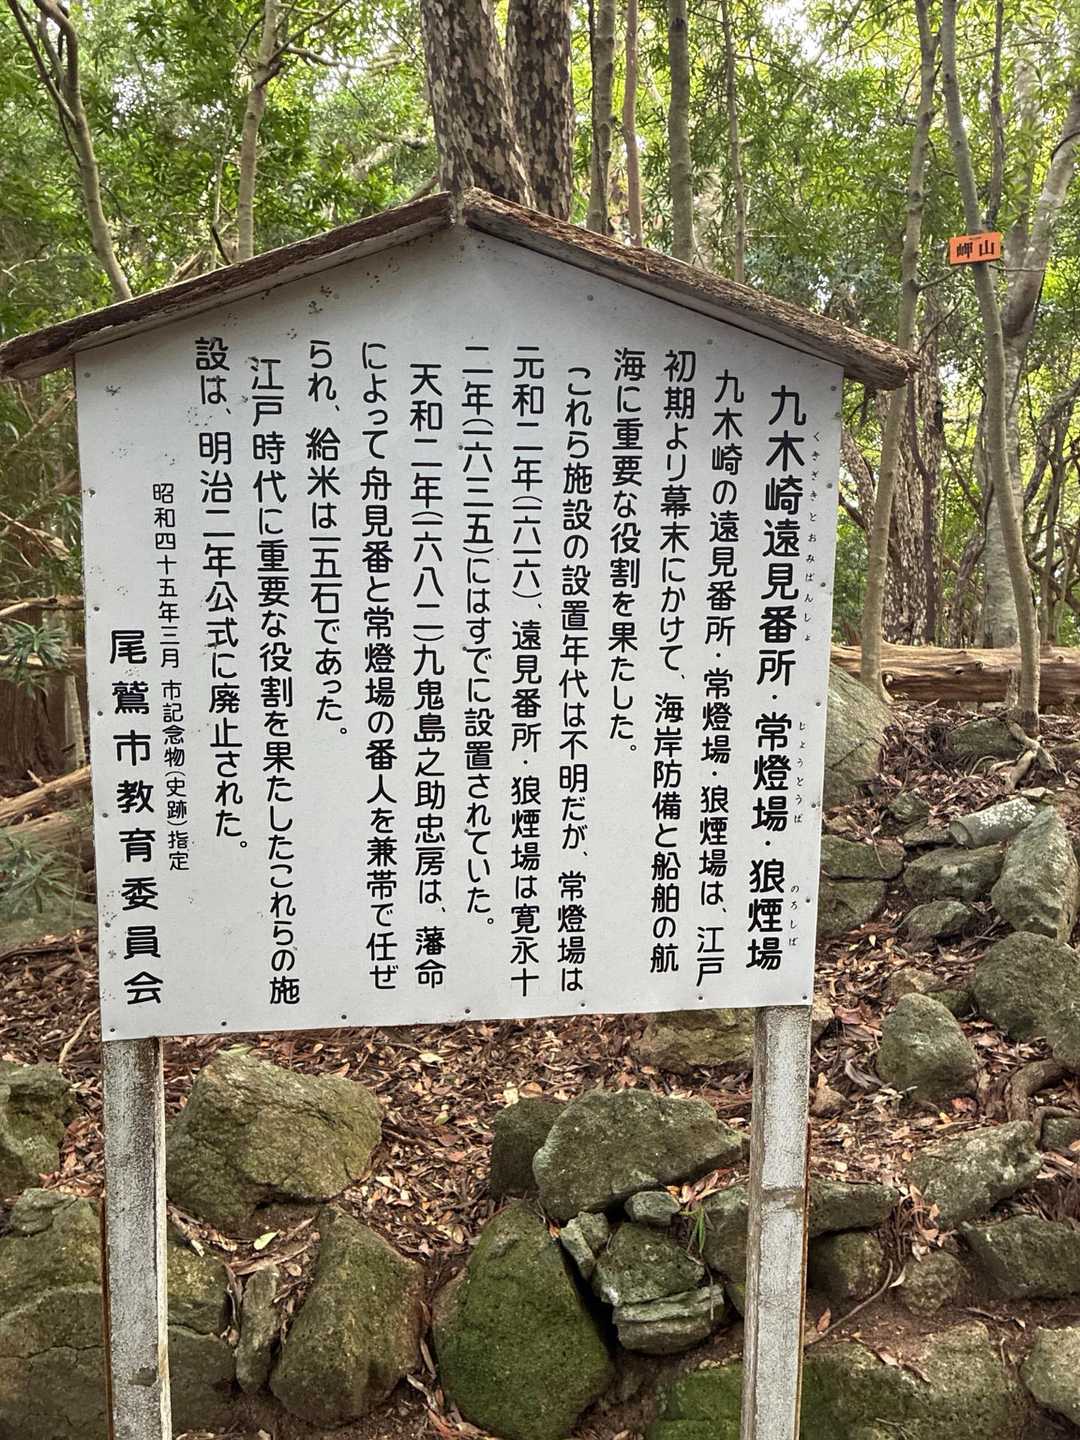 九木崎遠見番所・常燈場・狼煙場
くきざきとおみばんしょ
じょうとうば
のろしば
九木崎の遠見番所・常燈場・狼煙場は、江戸
初期より幕末にかけて、海岸防備と船舶の航
海に重要な役割を果たした。
これら施設の設置年代は不明だが、常燈場は
元和二年(一六一六)、遠見番所・狼煙場は寛永十
二年(一六三五)にはすでに設置されていた。
天和二年(一六八二)九鬼島之助忠房は、藩命
によって舟見番と常燈場の番人を兼帯で任ぜ
られ、給米は一五石であった。
江戸時代に重要な役割を果たしたこれらの施
設は、明治二年公式に廃止された。
昭和四十五年三月 市記念物(史跡)指定
尾鷲市教育委員会
岬山